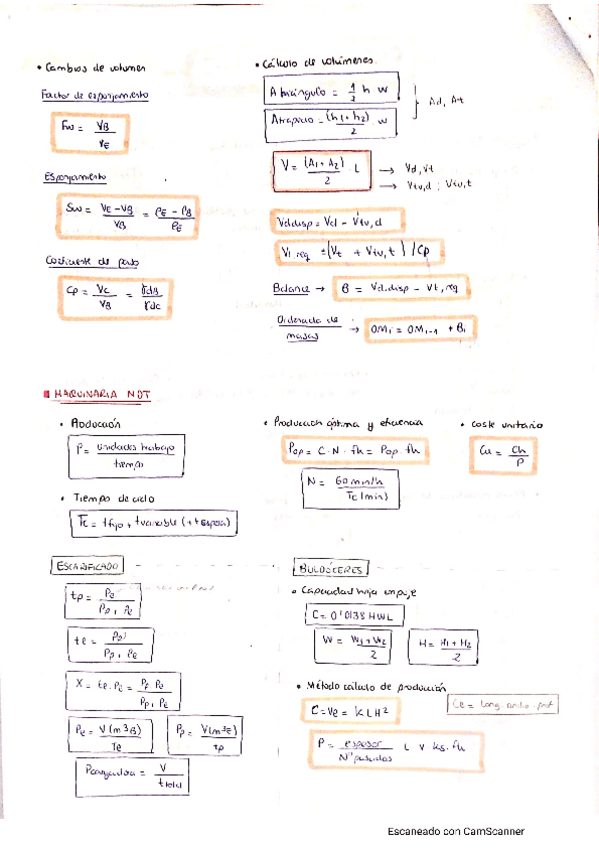 • Cambios de volumen
Factor de esponjamiento
Fw = VB / VE
Esponjamiento
Sw = VE - VB / VB = ρE - ρB / ρE
Coeficiente de paso
Cp = VC / VB = γdB / γdC
• Cálculo de volúmenes
A triángulo = 1/2 h w
A trapecio = (h1 + h2) / 2 w
Ad, At
V = (A1 + A2) / 2 · L → Vd, Vt
→ Vtv,d ; Vtv,t
Vd.disp = Vd - Vtv,d
Vt,req = (Vt + Vtv,t) / Cp
Balance → B = Vd.disp - Vt,req
Ordenada de masas → OMi = OMi-1 + Bi
MAQUINARIA MDT
• Producción
P = unidades trabajo / tiempo
• Tiempo de ciclo
Tc = tfijo + tvariable (+ tespera)
• Producción óptima y eficiencia
Pop = C · N · fh = Pop · fh
N = 60 min/h / Tc (min)
• Coste unitario
Cu = Ch / P
ESCARIFICADO
tp = Pe / Pp + Pe
te = Pp / Pp + Pe
X = te · Pe = Pp · Pe / Pp + Pe
Pe = V (m³B) / Te
Pp = V (m³E) / tp
Pcargadora = V / ttotal
BULDÓCERES
• Capacidad hoja empuje
C = 0'0138 HWL
W = W1 + W2 / 2
H = H1 + H2 / 2
• Método cálculo de producción
C = Ve = K L H²
Ce = long · ancho · prof
P = espesor / Nº pasadas L V ks · fh
Escaneado con CamScanner